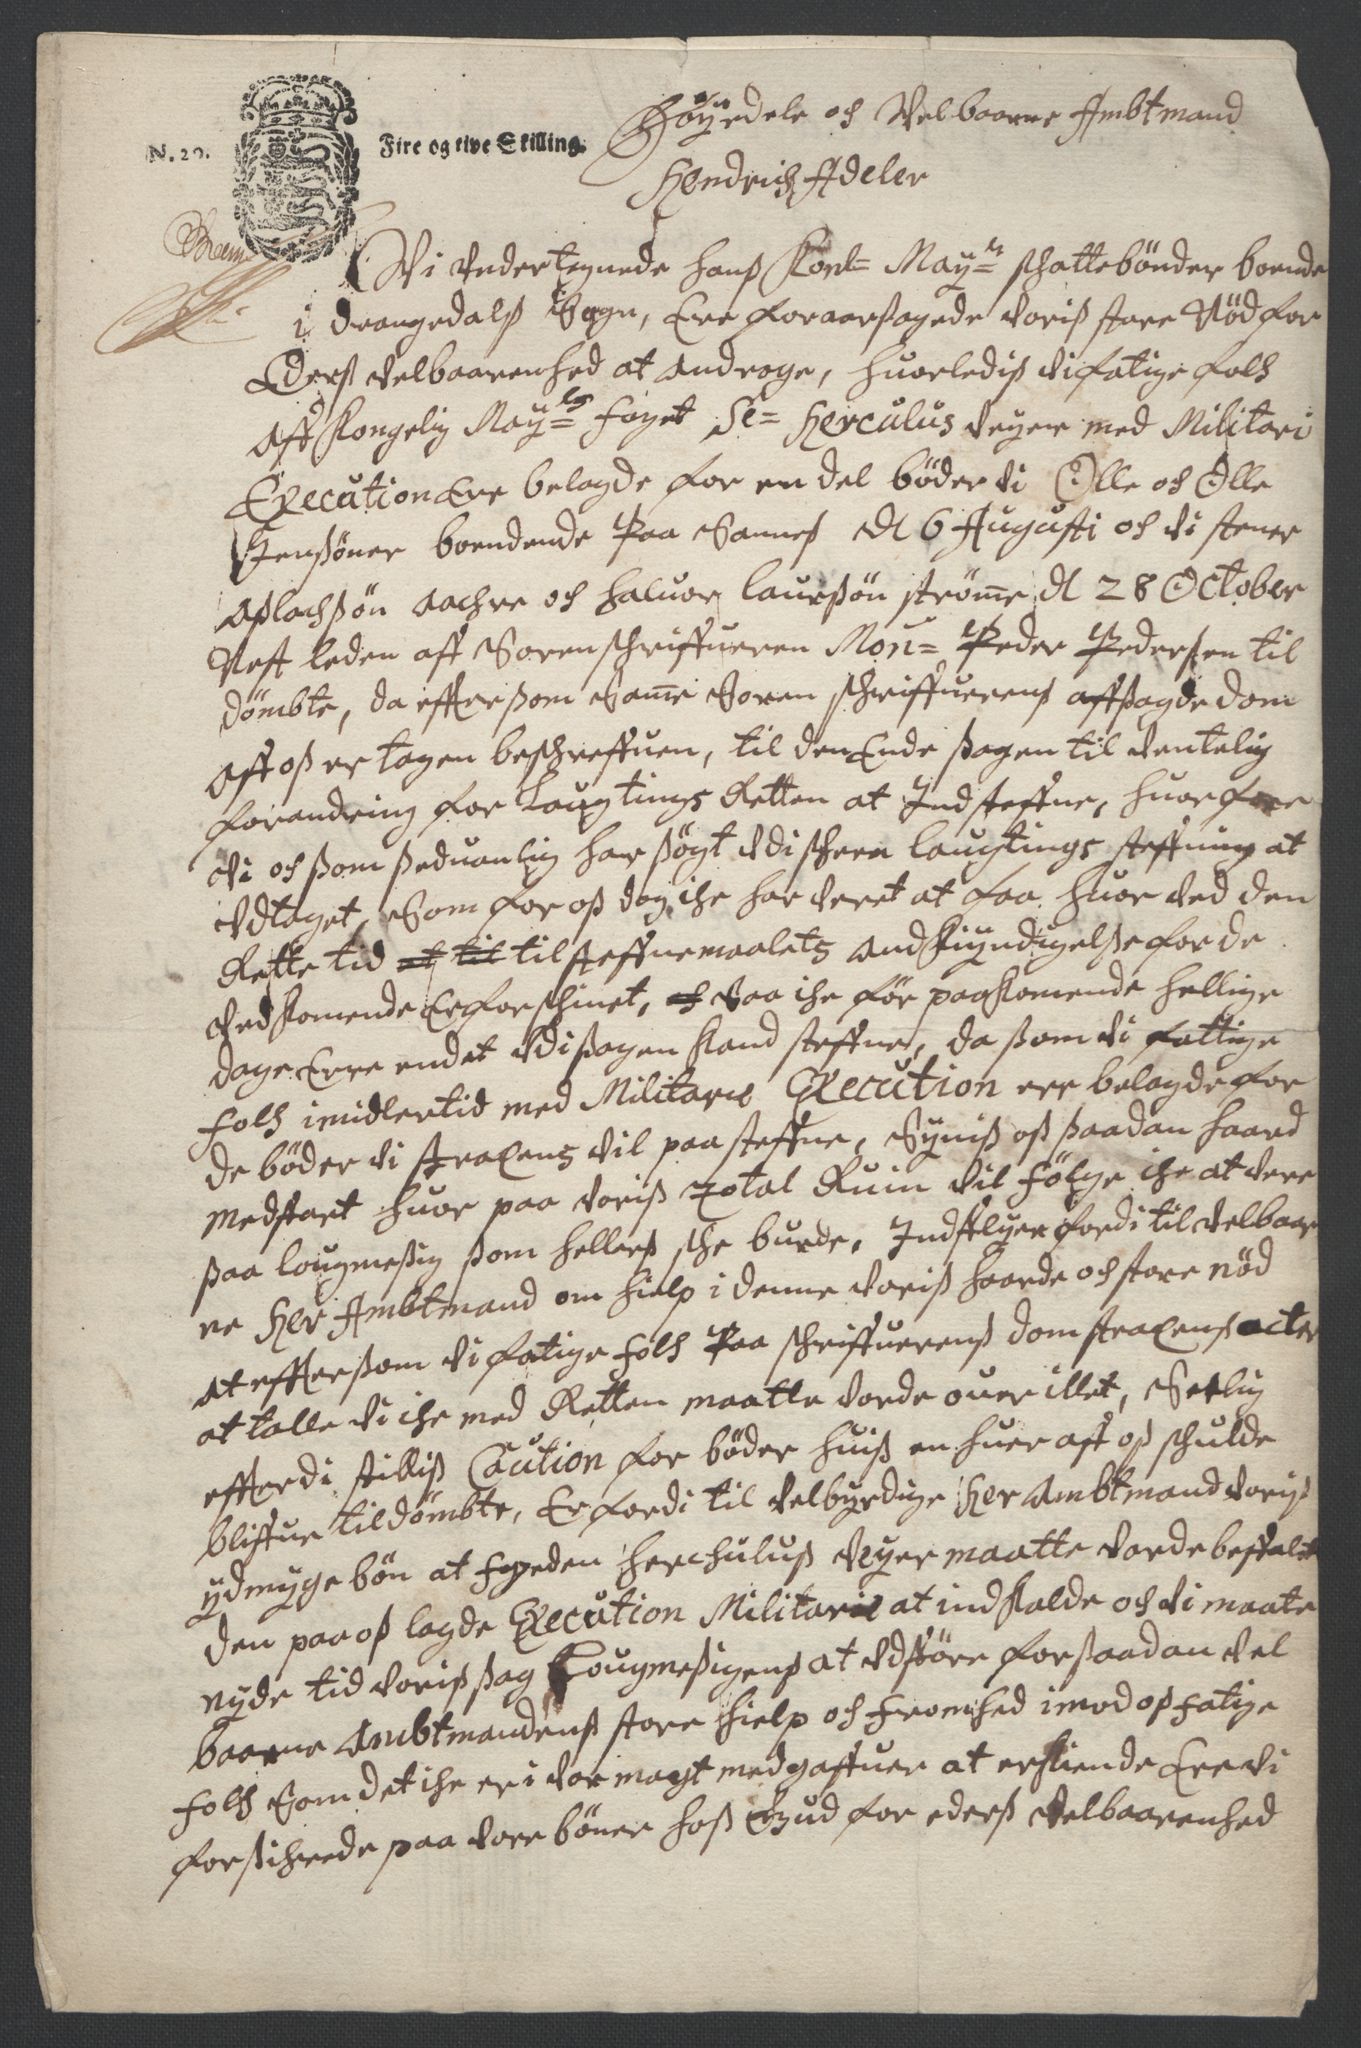 N. 29.
Fire og tive Skilling.
Höÿedele och Velbaarne Ambtmand
Hendrich Adeler
Vi Vndertegnede hanß Konl= Maÿ=ts schattebönder boende
i draangedalß Sogn, Ere foraarßagede Voriß store Nöd for
Ederß Velbaarenhed at Androge, huorlediß Vi fatige folch
Aff Kongelig Maÿ=ts foget Se= Herculus Veÿer med Militari
Execution Ere belagde for en del böder Vi Olle och Olle
Jensöner boendende Paa Sanneß dl 6 Augusti och Vi stener
Aßlachßön Aachre och haluor Laurßön ströme dl 28 October
Nest leden aff Sorenschriffueren Mon= Peder Pedersen til
dömbte, da effterßom Same Soren schriffuerenß affßagde dom
Aff oß er tagen beschreffuen, til den Ende ßagen til Ventelig
forandring for Laugtings Retten at Indsteffne, huorfore
Vi och ßom ßeduanlig har ßögt Vdi scheen laugtings steffning at
Vdtaget, Som for oß dog iche har Veret at faa huor Ved den
Rette tid til steffnemaalets Andkÿndigelße for de
Vedkomende Er forschinet, Saa iche för paakomende hellige
dage Erre endet Vdi ßagen kand steffne, da ßom Vi fattige
folch imidlertid med Militarie Execution err belagde for
de böder Vi straxens Vil paa steffne, Sÿniß oß ßaadan haard
medfart huor paa Voriß Total Ruin Vil fölge iche at Vere
ßaa lougmeßig ßom hellerß sche burde, Indflÿer fordi til Velbaar
ne Her Ambtmand om hielp i denne Voriß haarde och store nöd
At effterßom Vi fatige folch Paa schriffuerenß dom straxenß acter
at talle Vi iche med Retten maatte Vorde ouer illet, Serlig
effterdi stilliß Caution for böder huiß en huer aff oß schulde
bliffue tildömbte, Er fordi til Velbÿrdige Her Ambtmand Voriß
ÿdmÿge bön at fogeden Herchuluß Veÿer maatte Vorde befalet
den paa oß lagde Execution Militarie at indkalde och Vi maate
nÿde tid Voriß ßag Lougmeßigenß at Vdföre for ßaadan Vel
baarne Ambtmandenß store hielp och fromhed imod oß fatige
folch Som det iche er i Vor magt med gaffuer at erkiende Ere Vi
forßichrede paa Vore böner hoß Gud for ederß Velbaarenhed